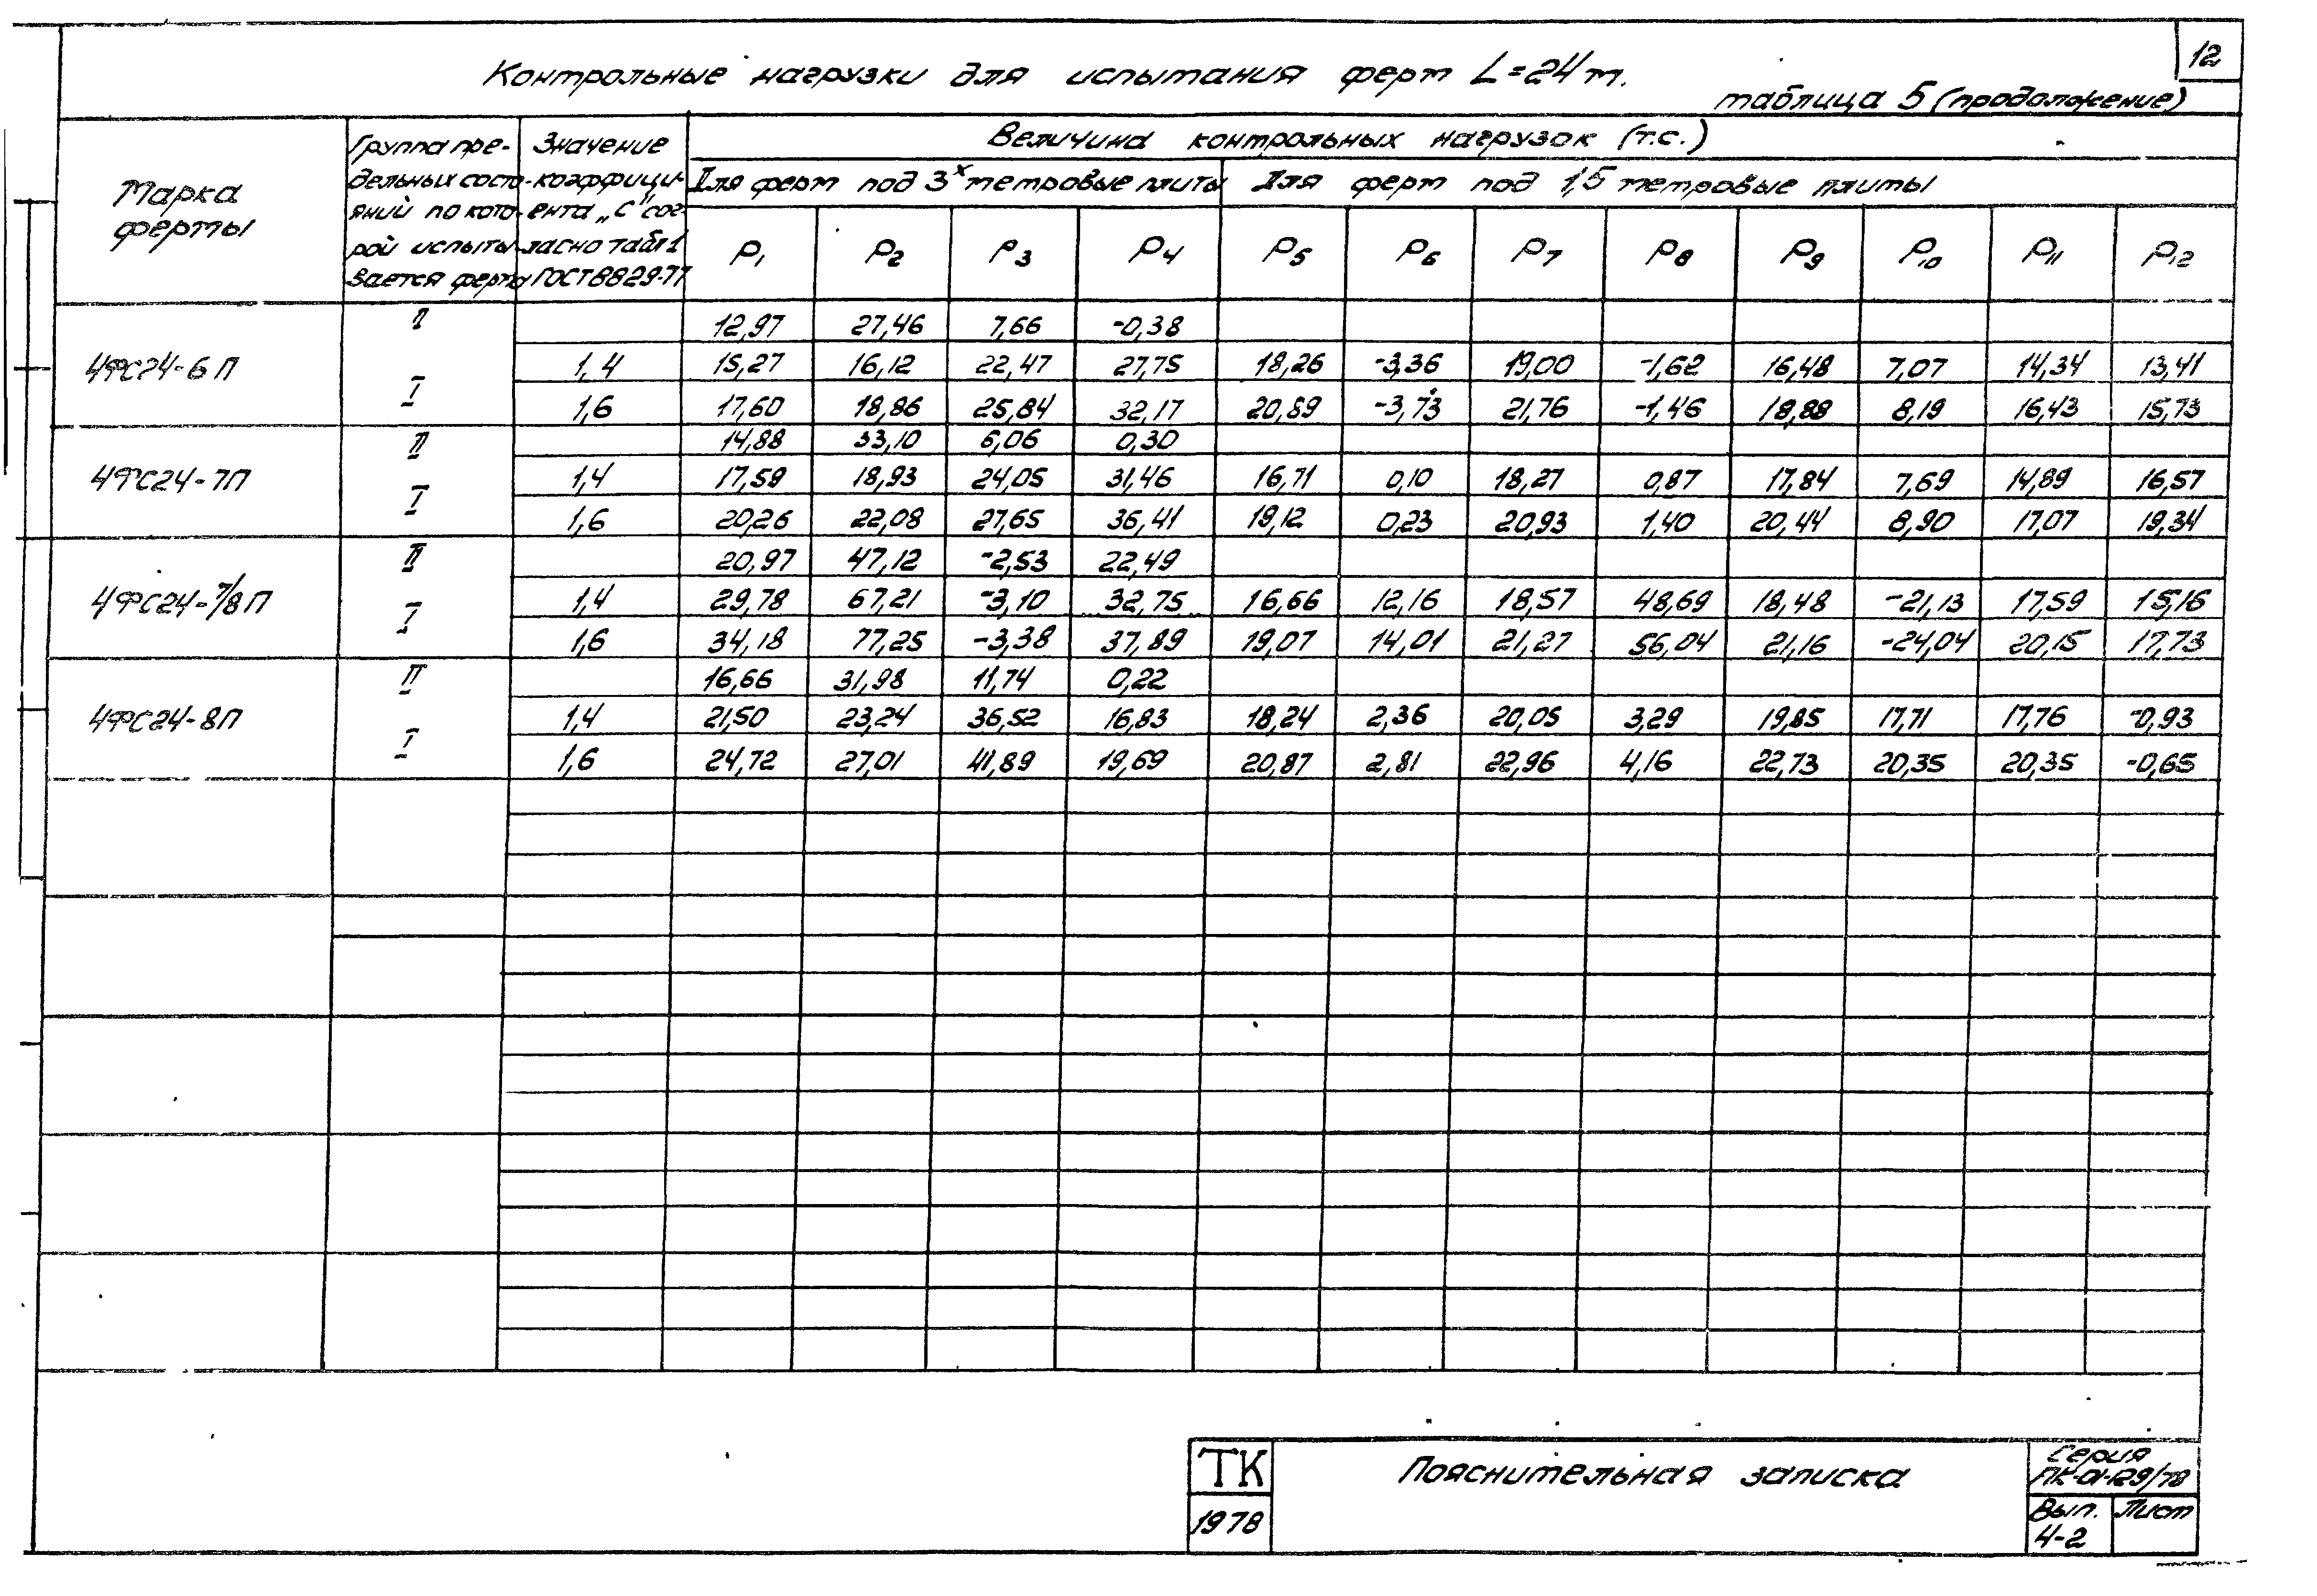 12
Контрольные нагрузки для испытания ферм L=24м.
таблица 5 (продолжение)
Марка фермы
Группа пре-
дельных состо-
яний по кото-
рой испыты-
вается ферма
Значение
коэффици-
ента „С" сог-
ласно табл 1
ГОСТ 8829-77
Величина контрольных нагрузок (т.с.)
Для ферм под 3х метровые плиты Для ферм под 1,5 метровые плиты
P1 P2 P3 P4 P5 P6 P7 P8 P9 P10 P11 P12
4ФС24-6П
II 12,97 27,46 7,66 -0,38
I 1,4 15,27 16,12 22,47 27,75 18,26 -3,36 19,00 -1,62 16,48 7,07 14,34 13,41
1,6 17,60 18,86 25,84 32,17 20,89 -3,73 21,76 -1,46 18,88 8,19 16,43 15,73
4ФС24-7П
II 14,88 33,10 6,06 0,30
I 1,4 17,59 18,93 24,05 31,46 16,71 0,10 18,27 0,87 17,84 7,69 14,89 16,57
1,6 20,26 22,08 27,65 36,41 19,12 0,23 20,93 1,40 20,44 8,90 17,07 19,34
4ФС24-7/8П
II 20,97 47,12 -2,53 22,49
I 1,4 29,78 67,21 -3,10 32,75 16,66 12,16 18,57 48,69 18,48 -21,13 17,59 15,16
1,6 34,18 77,25 -3,38 37,89 19,07 14,01 21,27 56,04 21,16 -24,04 20,15 17,73
4ФС24-8П
II 16,66 31,98 11,74 0,22
I 1,4 21,50 23,24 36,52 16,83 18,24 2,36 20,05 3,29 19,85 17,71 17,76 -0,93
1,6 24,72 27,01 41,89 19,69 20,87 2,81 22,96 4,16 22,73 20,35 20,35 -0,65
ТК
1978
Пояснительная записка
Серия
ПК-01-129/78
Вып. Лист
4-2